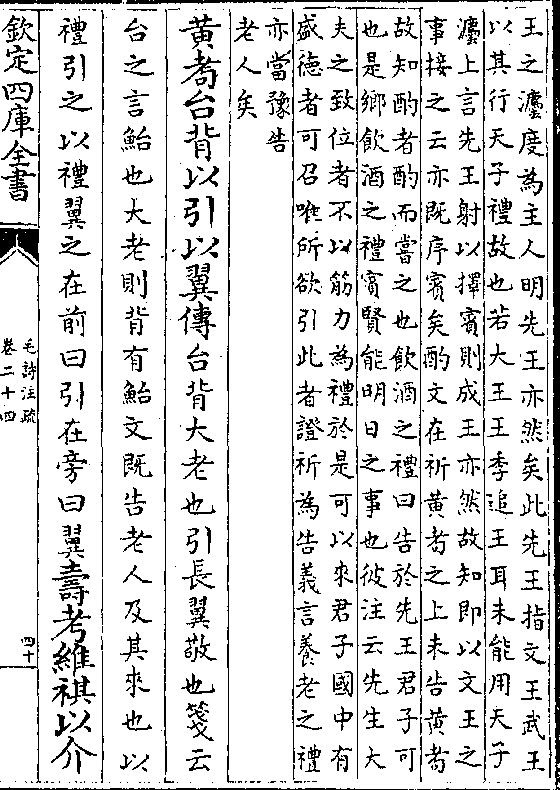 王之灋度為主人明先王亦然矣此先王指文王武王
以其行天子禮故也若大王王季追王耳未能用天子
灋上言先王射以擇賓則成王亦然故知即以文王之
事接之云亦既序賓矣酌文在祈黃耉之上未告黃耉
故知酌者酌而嘗之也飲酒之禮曰告於先王君子可
也是鄉飲酒之禮賓賢能明日之事也彼注云先生大
夫之致位者不以筋力為禮於是可以來君子國中有
盛德者可召唯所欲引此者證祈為告義言養老之禮
亦當豫告
老人矣
黃耉台背以引以翼傳台背大老也引長翼敬也箋云
台之言鮐也大老則背有鮐文既告老人及其來也以
禮引之以禮翼之在前曰引在旁曰翼壽考維祺以介
欽定四庫全書
毛詩注疏
卷二十四
四十